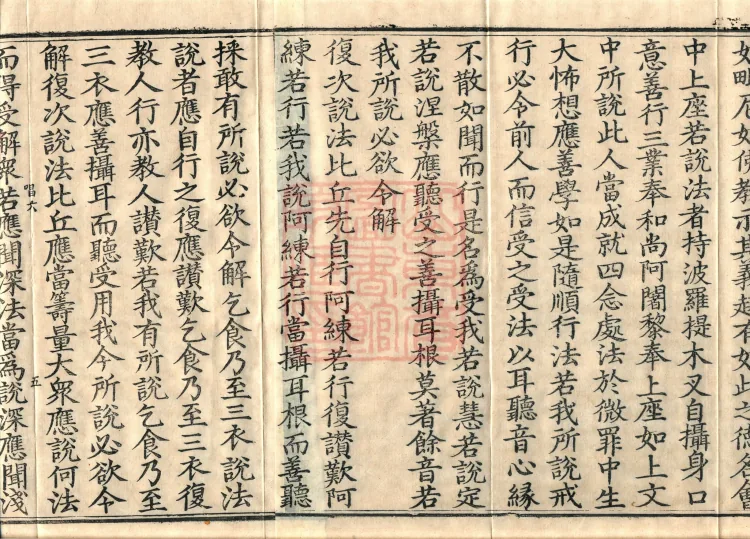 教示其義趣有如此之德名
中上座若說法者持波羅提木叉自攝身口
意善行三業奉和尚阿闍黎奉上座如上文
中所說此人當成就四念處法於微罪中生
大怖想應善學如是隨順行法若我所說戒
行必令前人而信受之受法以耳聽音心緣
不散如聞而行是名爲受我若說慧若說定
若說涅槃應聽受之善攝耳根莫著餘音若
我所說必欲令解
復次說法比丘先自行阿練若行復讚歎阿
練若行若我說阿練若行當攝耳根而善聽
採敢有所說必欲令解乞食乃至三衣說法
說者應自行之復應讚歎乞食乃至三衣復
教人行亦教人讚歎若我有所說乞食乃至
三衣應善攝耳而聽受用我今所說必欲令
解復次說法比丘應當籌量大衆應說何法
唱六 五
而得受解衆若應聞深法當爲說深應聞淺